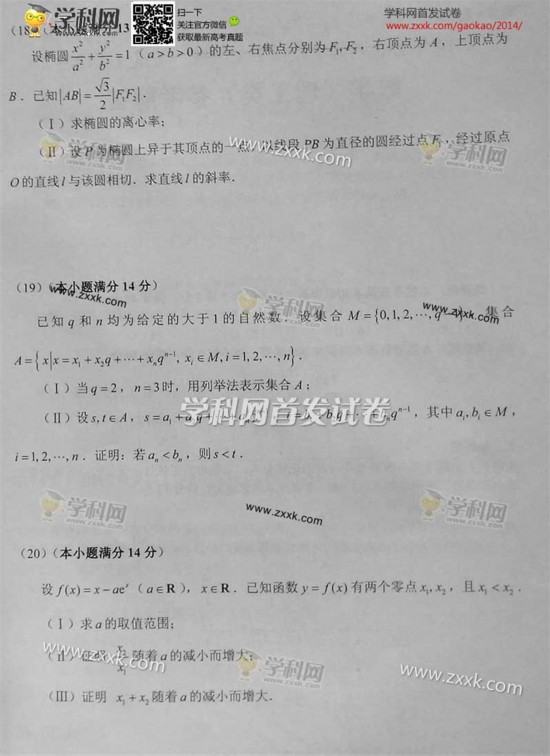 学科网
扫一下
关注官方微信
获取最新高考真题
学科网首发试卷
www.zxxk.com/gaokao/2014/
(18)(本小题满分13
设椭圆 x²/a² + y²/b² = 1 (a>b>0) 的左、右焦点分别为 F₁,F₂, 右顶点为 A, 上顶点为
B. 已知|AB| = √3/2 |F₁F₂|.
(Ⅰ) 求椭圆的离心率;
(Ⅱ) 设P为椭圆上异于其顶点的一点, 以线段 PB 为直径的圆经过点 F₁, 经过原点
O的直线 l 与该圆相切. 求直线 l 的斜率.
学科网
www.zxxk.com
(19)(本小题满分14分)
www.zxxk.com
学科网
www.zxxk.com
已知 q 和 n 均为给定的大于1的自然数. 设集合 M = {0,1,2,⋯,q−1}, 集合
A = {x|x = x₁ + x₂q + ⋯ + xₙqⁿ⁻¹, xᵢ ∈ M, i = 1,2,⋯,n}.
(Ⅰ) 当 q = 2, n = 3时, 用列举法表示集合 A;
学科网首发试卷
(Ⅱ) 设 s,t ∈ A, s = a₁ + a₂q + ⋯ 其中 aᵢ,bᵢ ∈ M,
i = 1,2,⋯,n. 证明: 若 aₙ < bₙ, 则 s < t.
学科网
学科网
www.zxxk.com
(20)(本小题满分14分)
设 f(x) = x − aeˣ (a ∈ R), x ∈ R. 已知函数 y = f(x) 有两个零点 x₁,x₂, 且 x₁ < x₂.
(Ⅰ) 求 a 的取值范围;
(Ⅱ) 证明 x₂/x₁ 随着 a 的减小而增大;
学科网
www.zxxk.com
(Ⅲ) 证明 x₁ + x₂ 随着 a 的减小而增大.
www.zxxk.com
学科网